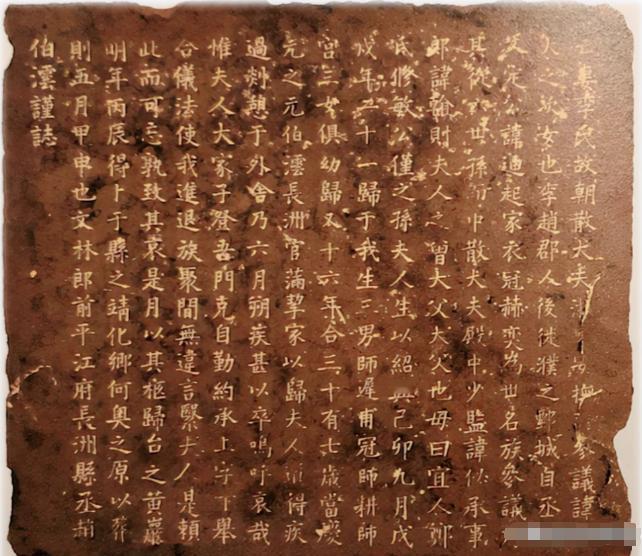 李氏故朝散大夫撫參議諱
之女也李趙郡人後徙濮之鄄城自丞
定公諱迪起家衣冠赫奕為世名族參議
其從世孫中散大夫殿中少監諱承事
郎諱翰則夫人之曾大父大父也母曰宜人鄭
氏脩敏公僅之孫夫人生以紹興己卯九月戊
戌年二十一歸于我生三男師遲甫冠師耕師
宮三女俱幼歸又十六年合三十有七歲當慶
元之元伯澐長洲官滿挈家以歸夫人道得疾
過剡憩于外舍乃六月朔疾甚以卒嗚呼哀哉
惟夫人大家子登吾門克自勤約承上字下舉
合儀法使我進退族聚間無違言繄夫人是賴
此而可忘孰致其哀是月以其柩歸台之黃巖
明年丙辰得卜于縣之靖化鄉何奧之原以葬
則五月甲申也文林郎前平江府長洲縣丞趙
伯澐謹誌